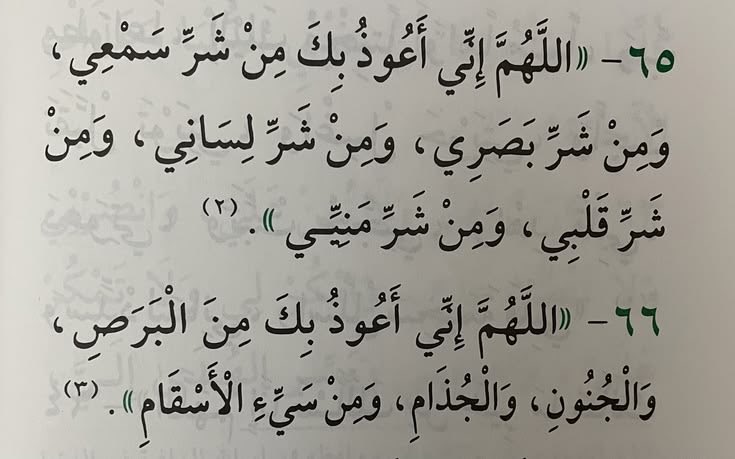 ٦٥- «اللَّهُمَّ إِنِّي أَعُوذُ بِكَ مِنْ شَرِّ سَمْعِي،
وَمِنْ شَرِّ بَصَرِي، وَمِنْ شَرِّ لِسَانِي، وَمِنْ
شَرِّ قَلْبِي، وَمِنْ شَرِّ مَنِيِّـي». (٢)
٦٦- «اللَّهُمَّ إِنِّي أَعُوذُ بِكَ مِنَ الْبَرَصِ،
وَالْجُنُونِ، وَالْجُذَامِ، وَمِنْ سَيِّءِ الْأَسْقَامِ». (٣)